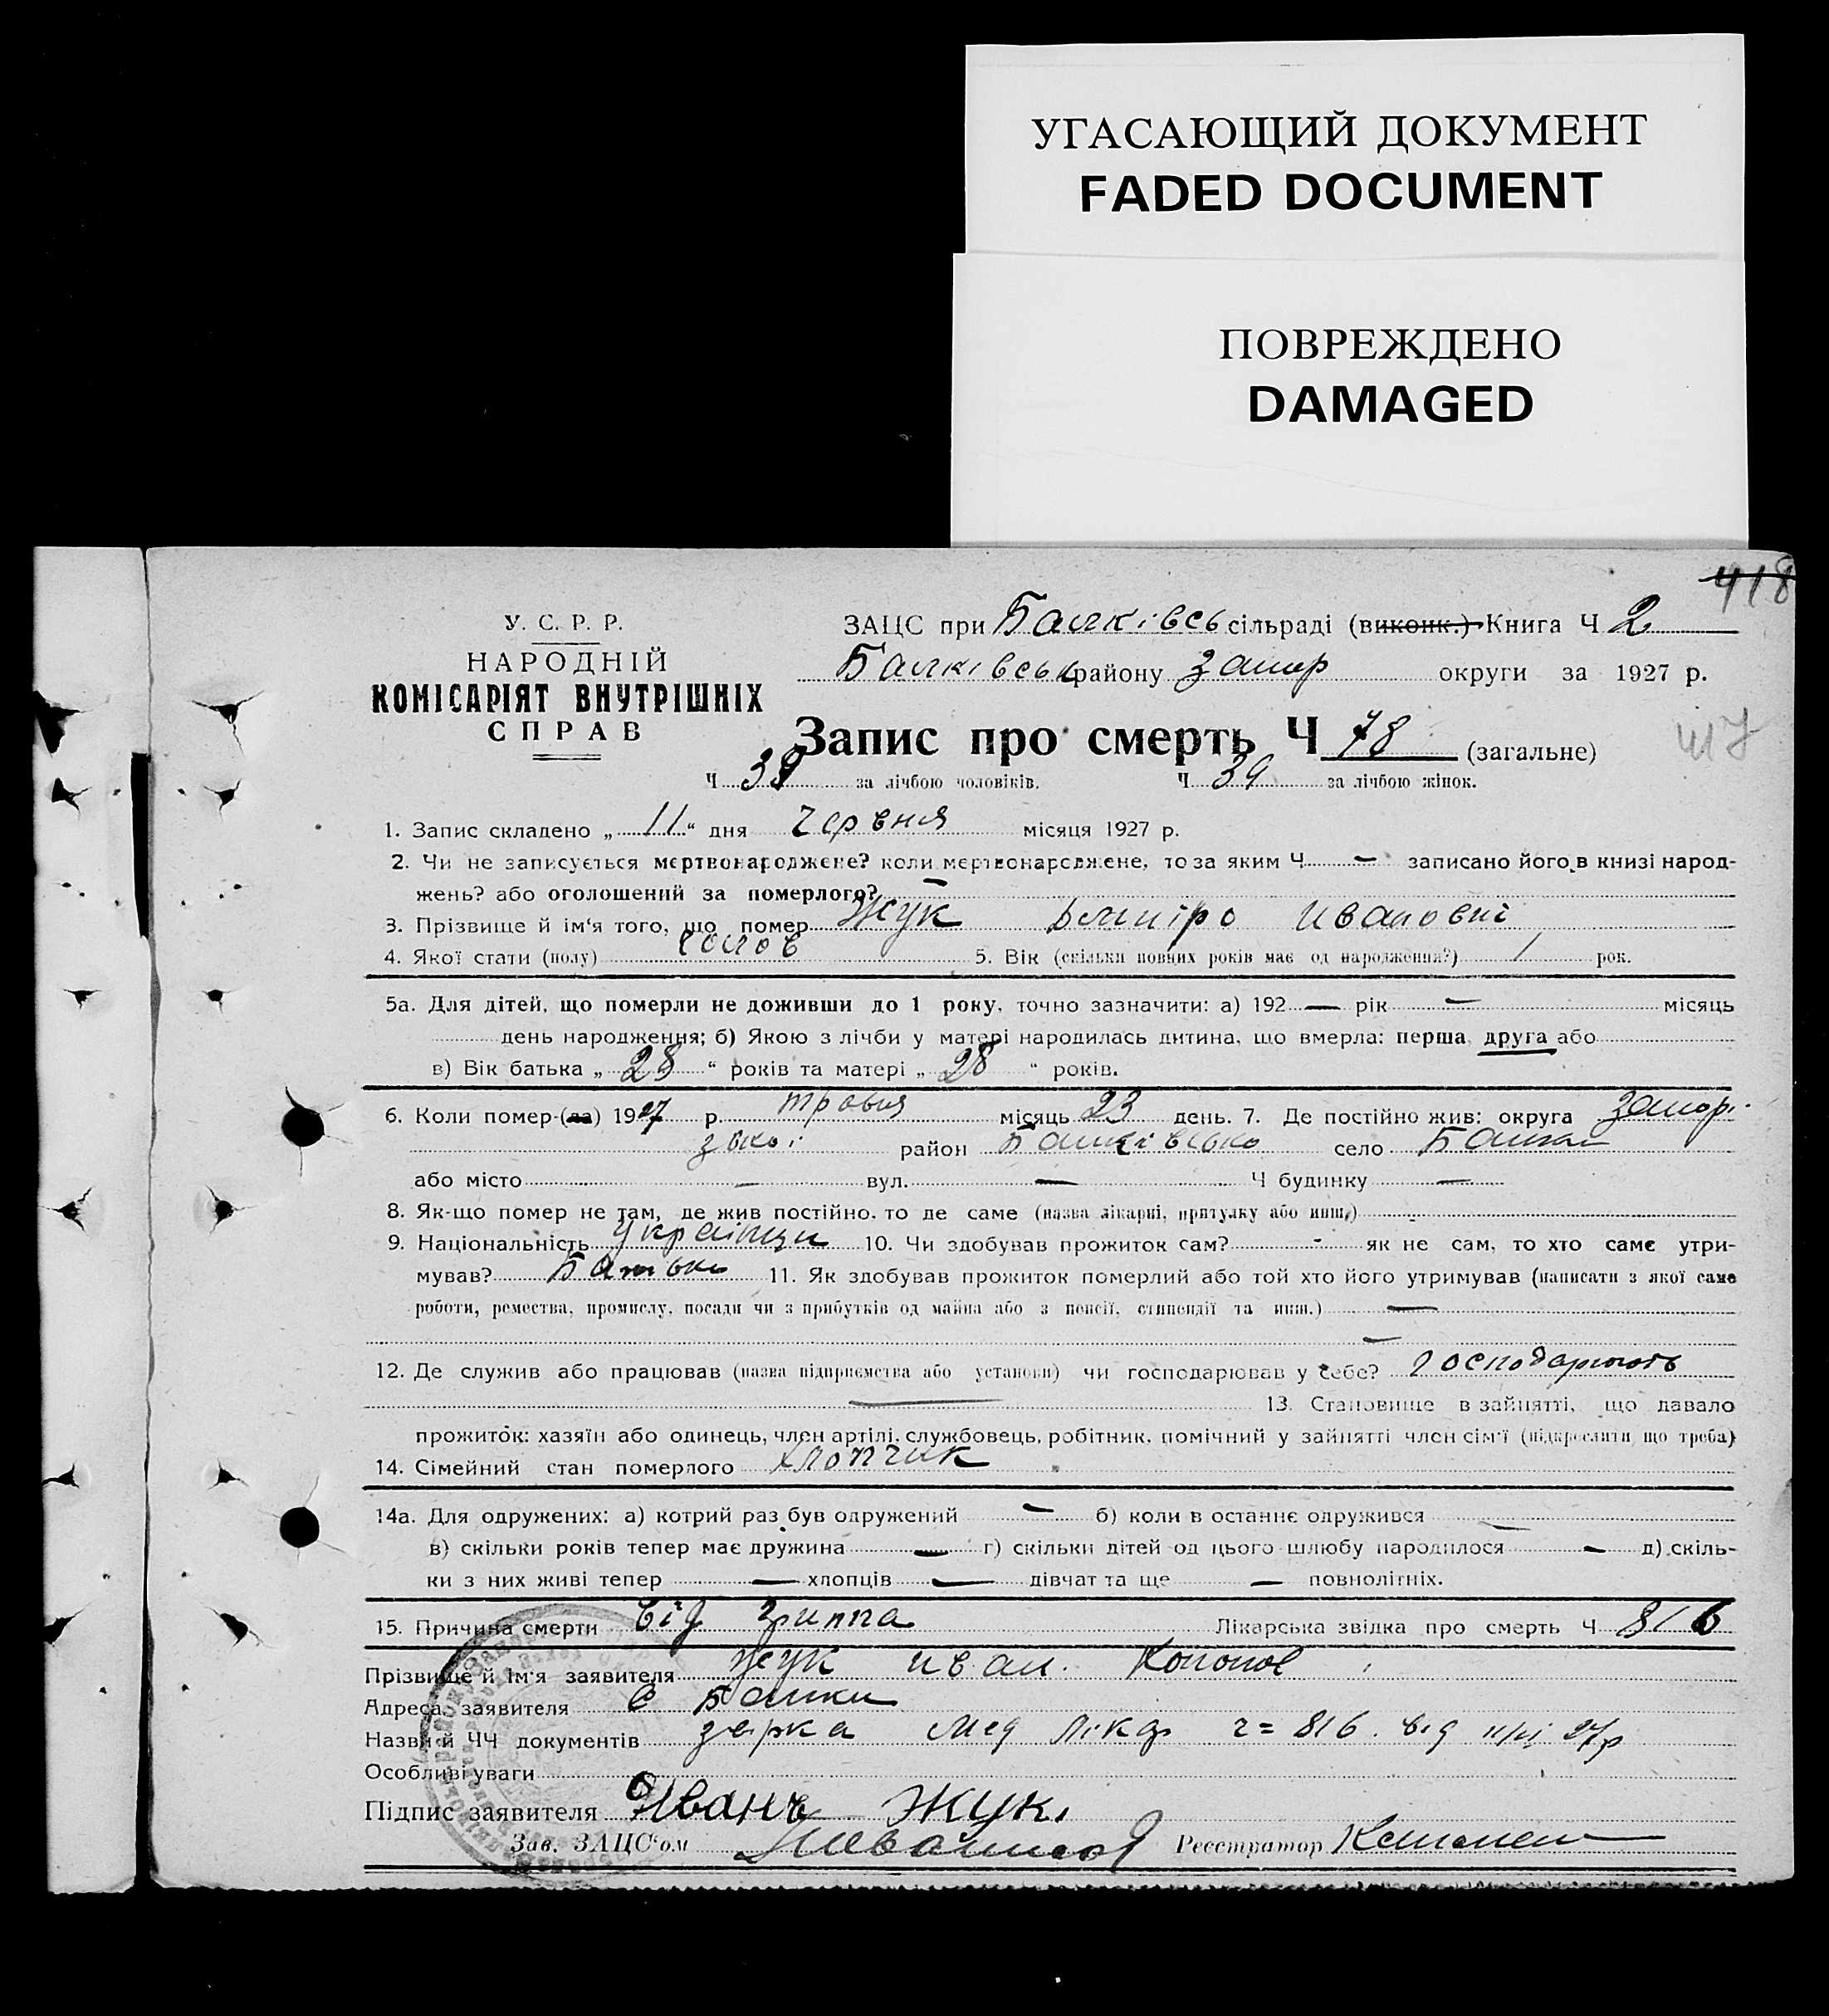 УГАСАЮЩИЙ ДОКУМЕНТ
FADED DOCUMENT
ПОВРЕЖДЕНО
DAMAGED
418
У. С. Р. Р.
НАРОДНІЙ
КОМІСАРІЯТ ВНУТРІШНІХ
СПРАВ
ЗАЦС при Балківсь сільраді (виконк.) Книга Ч 2
Балківськ району Запор округи за 1927 р.
417
Запис про смерть Ч 78 (загальне)
Ч 39 за лічбою чоловіків. Ч 39 за лічбою жінок.
1. Запис складено „ 11 “ дня червня місяця 1927 р.
2. Чи не записується мертвонароджене? коли мертвонароджене, то за яким Ч — записано його в книзі народ-
жень? або оголошений за померлого? —
3. Прізвище й ім'я того, що помер Жук Дмитро Иванович
4. Якої стати (полу) чолов 5. Вік (скільки повних років має од народження?) 1 рок.
5а. Для дітей, що померли не доживши до 1 року, точно зазначити: а) 192 — рік — місяць
день народження; б) Якою з лічби у матері народилась дитина, що вмерла: перша, друга або
в) Вік батька „ 28 “ років та матері „ 28 “ років.
6. Коли помер-(ла) 1927 р. травня місяць 23 день. 7. Де постійно жив: округа Запорі-
зької район Балківсько село Балки
або місто — вул. — Ч будинку —
8. Як-що помер не там, де жив постійно, то де саме (назва лікарні, притулку або инш.) -
9. Національність українци 10. Чи здобував прожиток сам? - як не сам, то хто саме утри-
мував? Батько 11. Як здобував прожиток померлий або той хто його утримував (написати з якої саме
роботи, ремества, промислу, посади чи з прибутків од майна або з пенсії, стипендії та инш.) —
—
12. Де служив або працював (назва підприємства або установи) чи господарював у себе? господарюють
— 13. Становище в зайнятті, що давало
прожиток: хазяїн або одинець, член артілі, службовець, робітник, помічний у зайнятті член сім'ї (підкреслити, що треба)
14. Сімейний стан померлого хлопчик
14а. Для одружених: а) котрий раз був одружений — б) коли в останнє одружився —
в) скільки років тепер має дружина — г) скільки дітей од цього шлюбу народилося — д) скіль-
ки з них живі тепер — хлопців — дівчат та ще — повнолітніх.
15. Причина смерти від гриппа Лікарська звідка про смерть Ч 816
Прізвище й Ім'я заявителя Жук Иван. Кононов
Адреса заявителя с Балки
Назви й ЧЧ документів мед лікар ч= 816 від 11/VI 27р
Особливі уваги
Підпис заявителя Иванъ Жукъ
Зав. ЗАЦС'ом Реєстратор